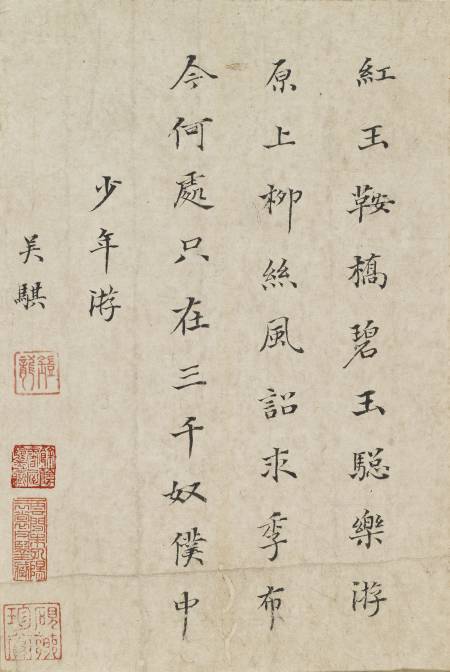 紅玉鞍橋碧玉驄樂游
原上柳絲風詔求季布
今何處只在三千奴僕中
少年游
吴騏